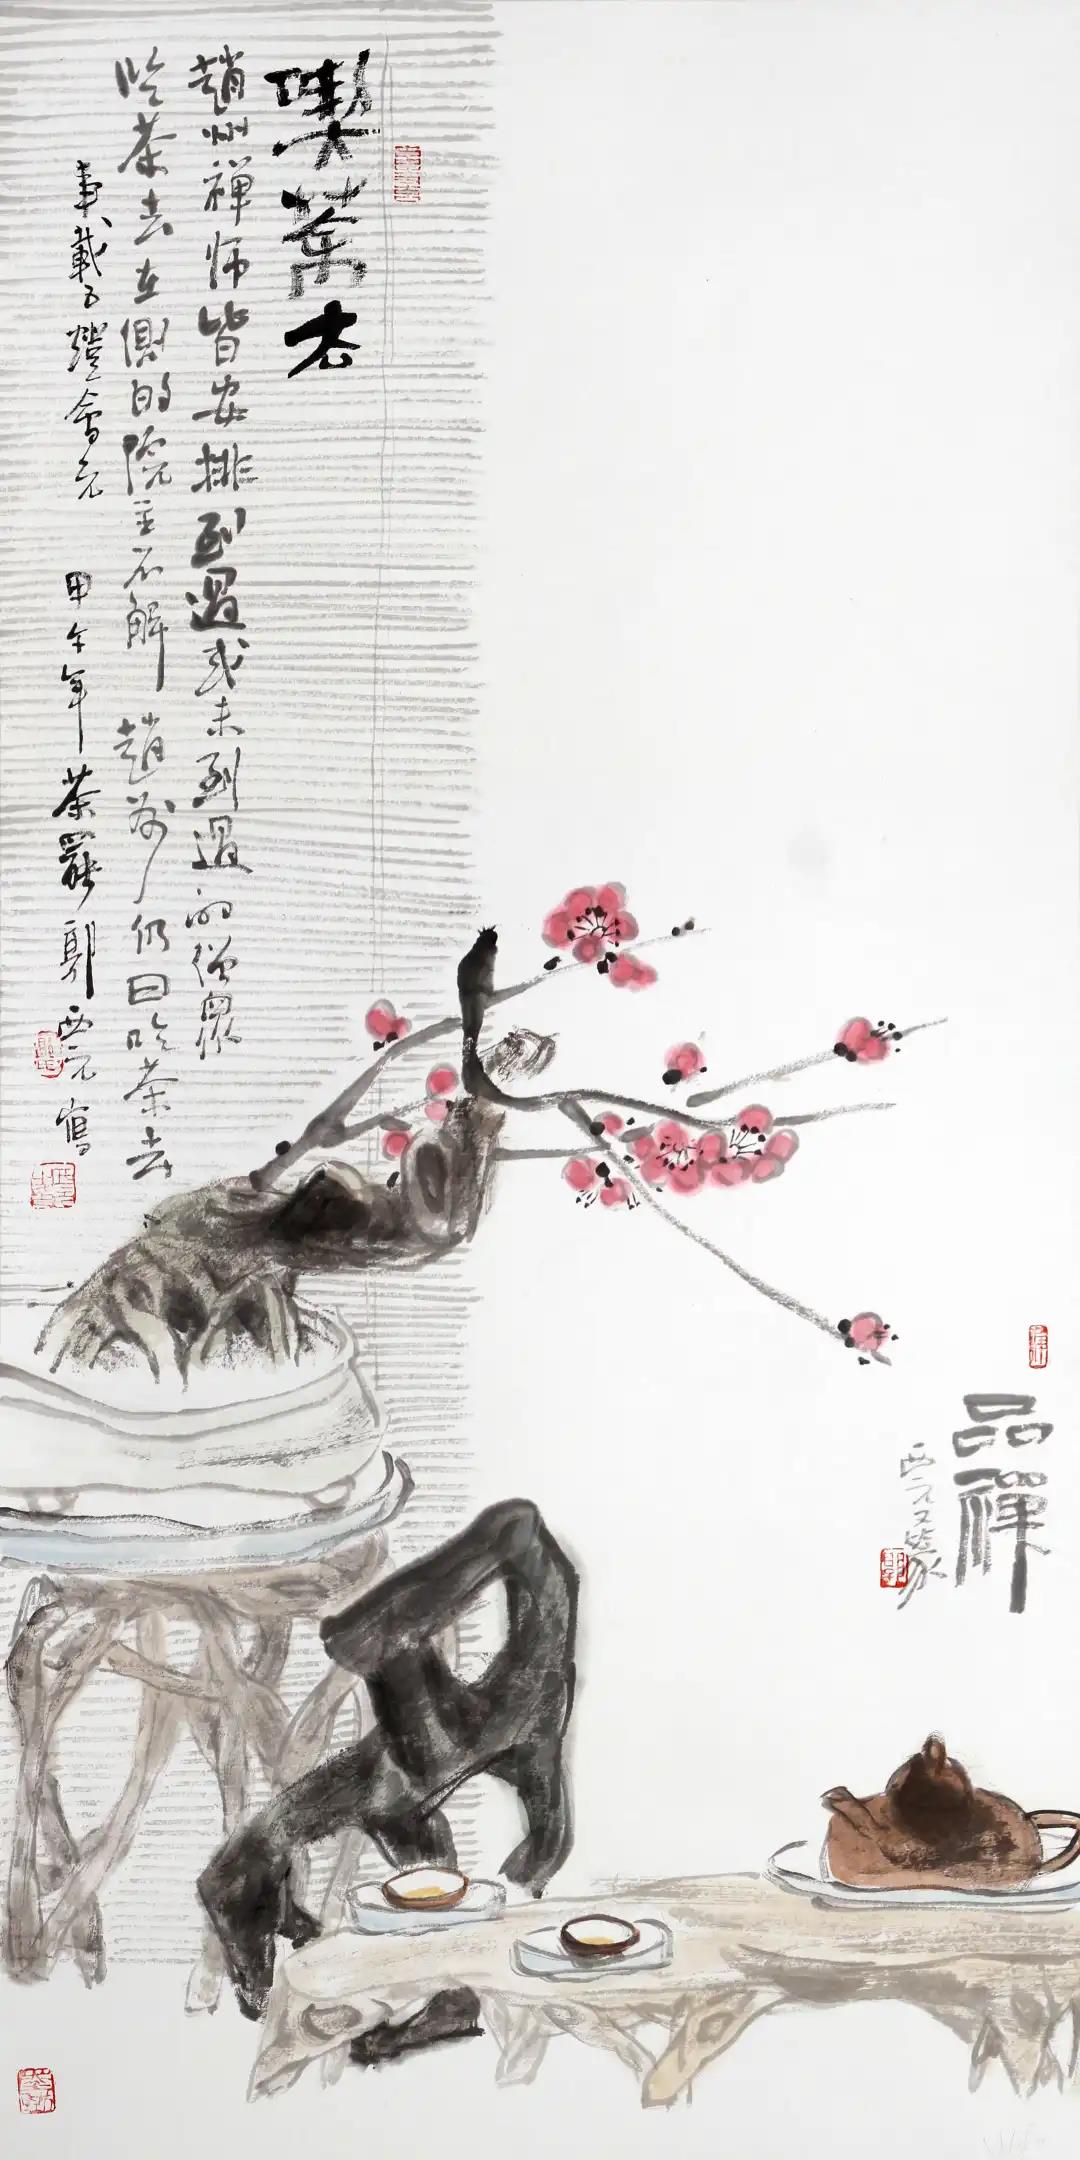 喫茶去
趙州禪师皆安排到過或未到過的僧眾
吃茶去在側的院主不解 趙州仍曰吃茶去
事載五燈會元 甲午年茶罷郭西元寫
品禪
西元又